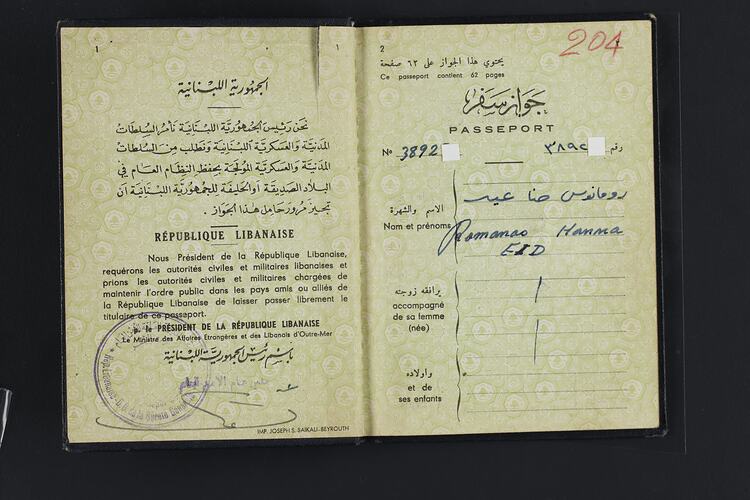 1
1
الجمهورية اللبنانية
نحن رئيس الجمهورية اللبنانية نأمر السلطات
المدنية والعسكرية اللبنانية ونطلب من السلطات
المدنية والعسكرية المولجة بحفظ النظام العام في
البلاد الصديقة أو الحليفة للجمهورية اللبنانية أن
تجيز مرور حامل هذا الجواز .
RÉPUBLIQUE LIBANAISE
Nous Président de la République Libanaise,
requérons les autorités civiles et militaires libanaises et
prions les autorités civiles et militaires chargées de
maintenir l'ordre public dans les pays amis ou alliés de
la République Libanaise de laisser passer librement le
titulaire de ce passeport.
p. le PRÉSIDENT DE LA RÉPUBLIQUE LIBANAISE
Le Ministre des Affaires Etrangères et des Libanais d'Outre-Mer
باسم رئيس الجمهورية اللبنانية
مدير عام الأمن العام
IMP. JOSEPH S. SAIKALI-BEYROUTH
2
204
يحتوي هذا الجواز على ٦٢ صفحة
Ce passeport contient 62 pages
جواز سفر
PASSEPORT
No 3892
رقم ٣٨٩٢
الاسم والشهرة
رومانوس حنا عيد
Nom et prénoms
Romanao Hanna
EID
يرافقه زوجته
accompagné
de sa femme
(née)
واولاده
et de
ses enfants